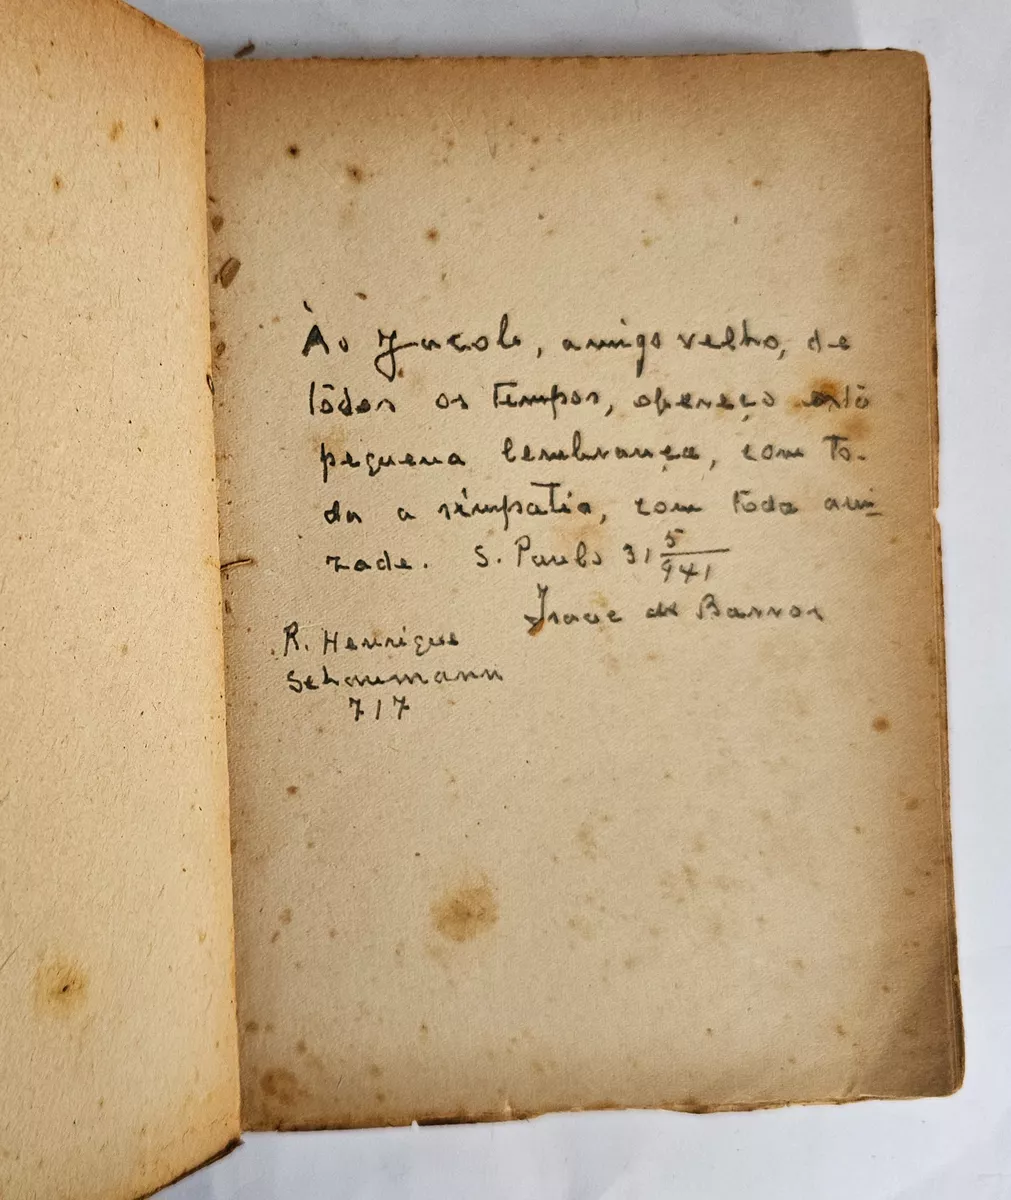 Ào Jacob, amigo velho, de
tôdos os tempos, ofereço esta
pequena lembrança, com to-
da a simpatia, com toda ami-
zade. S. Paulo 31 5/941
de Barros
R. Henrique
Schaumann
717